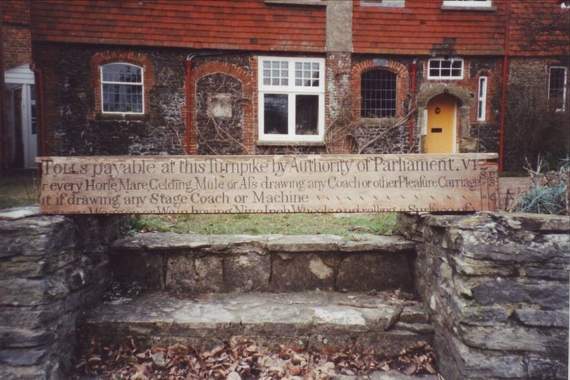 TOLLS payable at this Turnpike by Authority of Parliament. VI
r every Horse Mare, Gelding, Mule or Aſs drawing any Coach or other Pleaſure Carriag
ut if drawing any Stage Coach or Machine